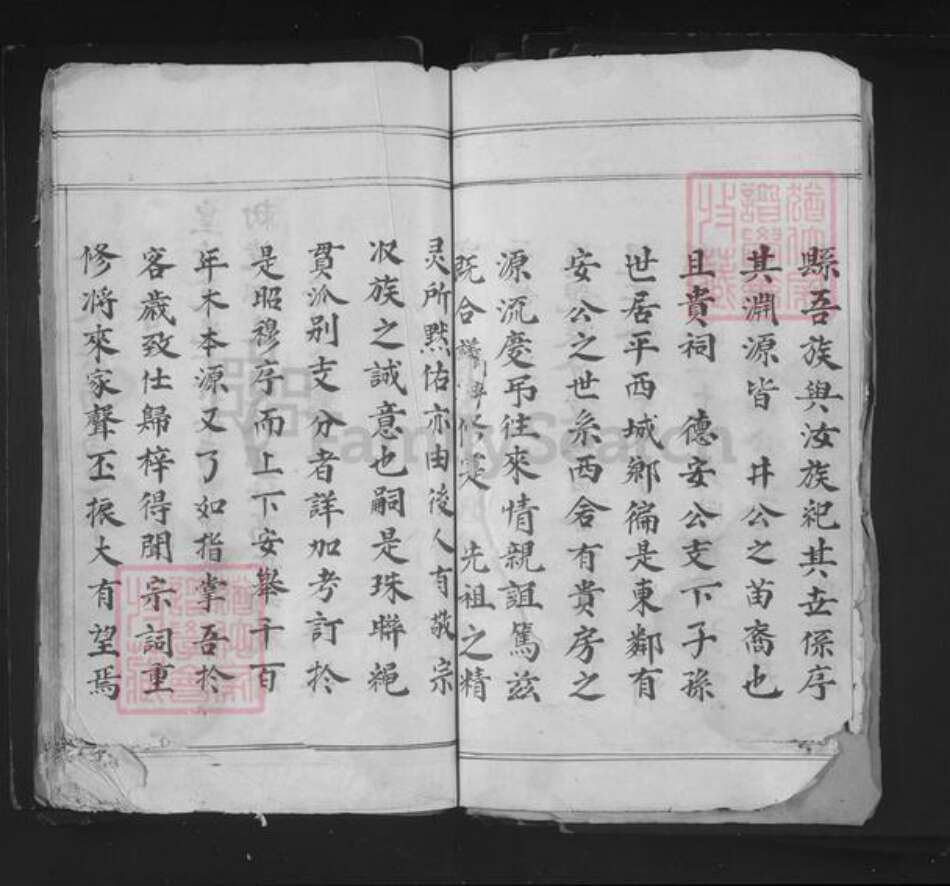 縣吾族與汝族祀其世係序
其淵源皆 井公之苗裔也
且貴祠 德安公支下子孫
世居平西城鄉徧是東鄰有
安公之世系西舍有貴房之
源流慶吊往來情親誼篤茲
既合譜 是 先祖之精
灵所黙佑亦由後人有敬宗
収族之誠意也嗣是珠聯繩
貫派别支分者詳加考訂扵
是昭穆序而上下安舉千百
年木本源又了如指掌吾扵
客歲致仕歸梓得聞宗詞重
修將來家聲丕振大有望焉
FamilySearch